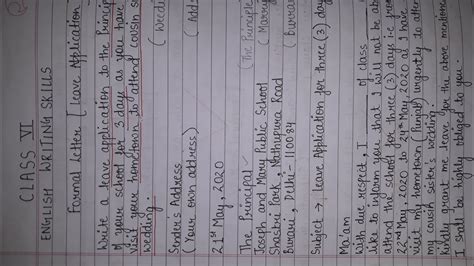 CLASS VI
ENGLISH WRITING SKILLS
Formal Letter [Leave Application
Write a leave application to the Princip
of your school for 3 days as you have
visit your hometown to attend cousin s
wedding.
Sender's Address
(Your own address)
21st May, 2020
The Principal
Joseph and Mary Public School
Shastri Park, Nathupura Road
Burari, Delhi-110084
Subject → Leave Application for three (3) days
Ma'am
With due respect, I ______ of class
like to inform you that I will not be a
attend the school for three (3) days i.e. from
22nd May, 2020 to 24th May, 2020 as I have
visit my hometown (Punjab) urgently to atten
my cousin sister's wedding.
Kindly grant me leave for the above mentione
I shall be highly obliged to you.
(Wedd
(Add
(The Principle
(Mary
(Burari